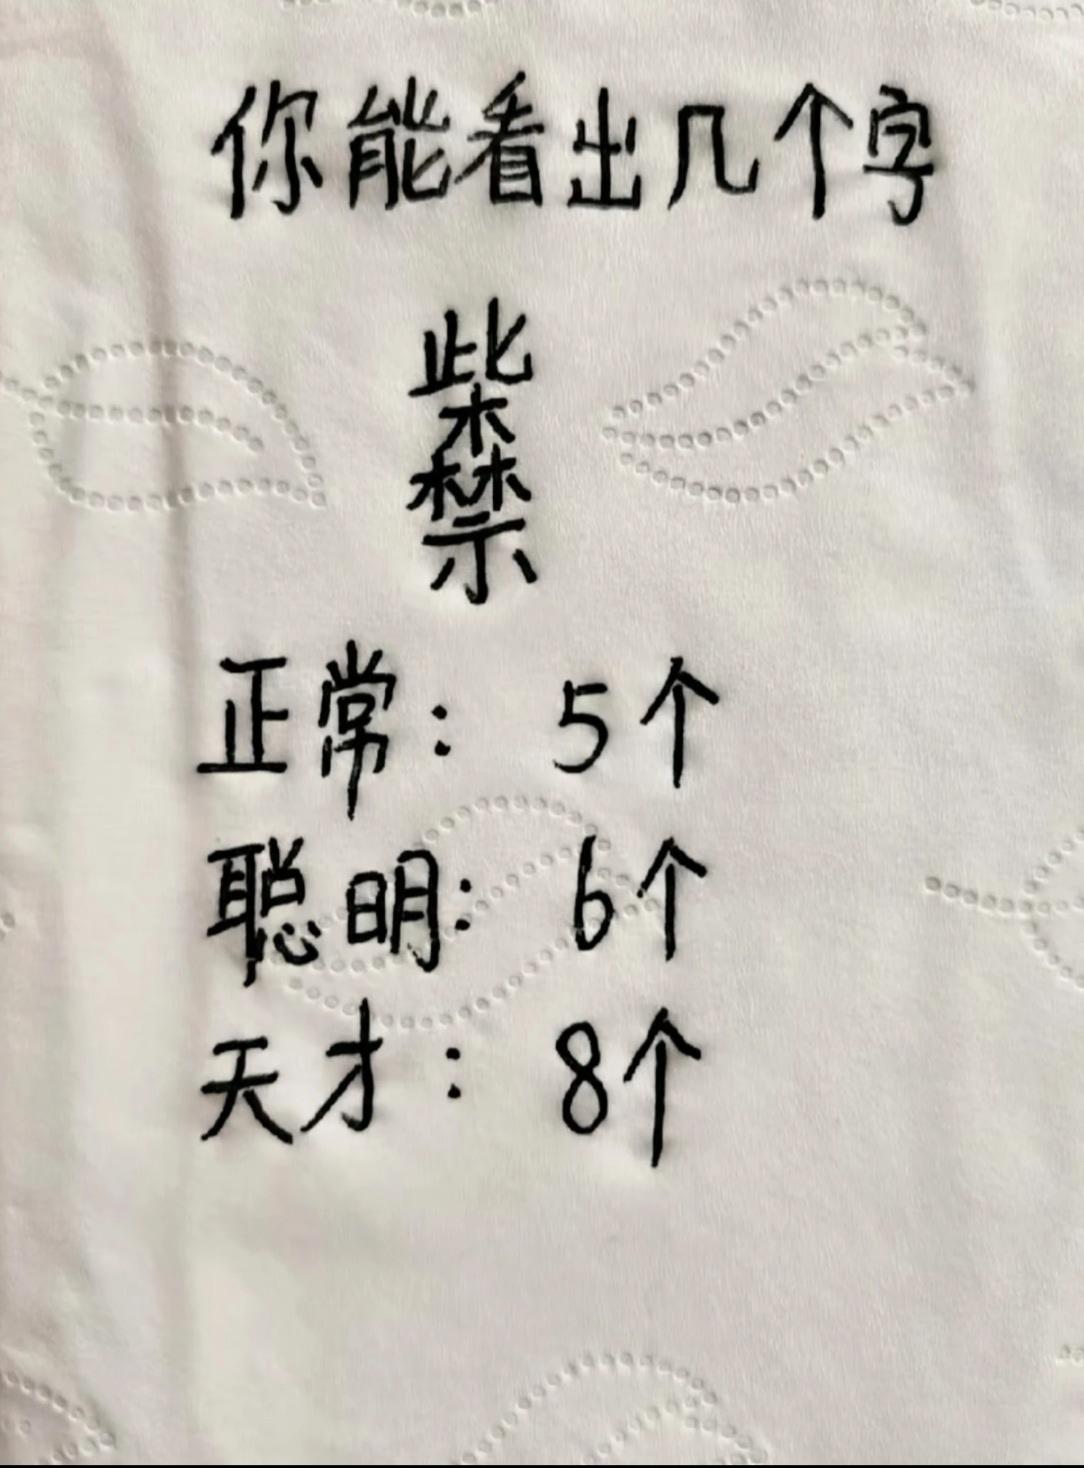 你能看出几个字
柴
禁
正常：5个
聪明：6个
天才：8个